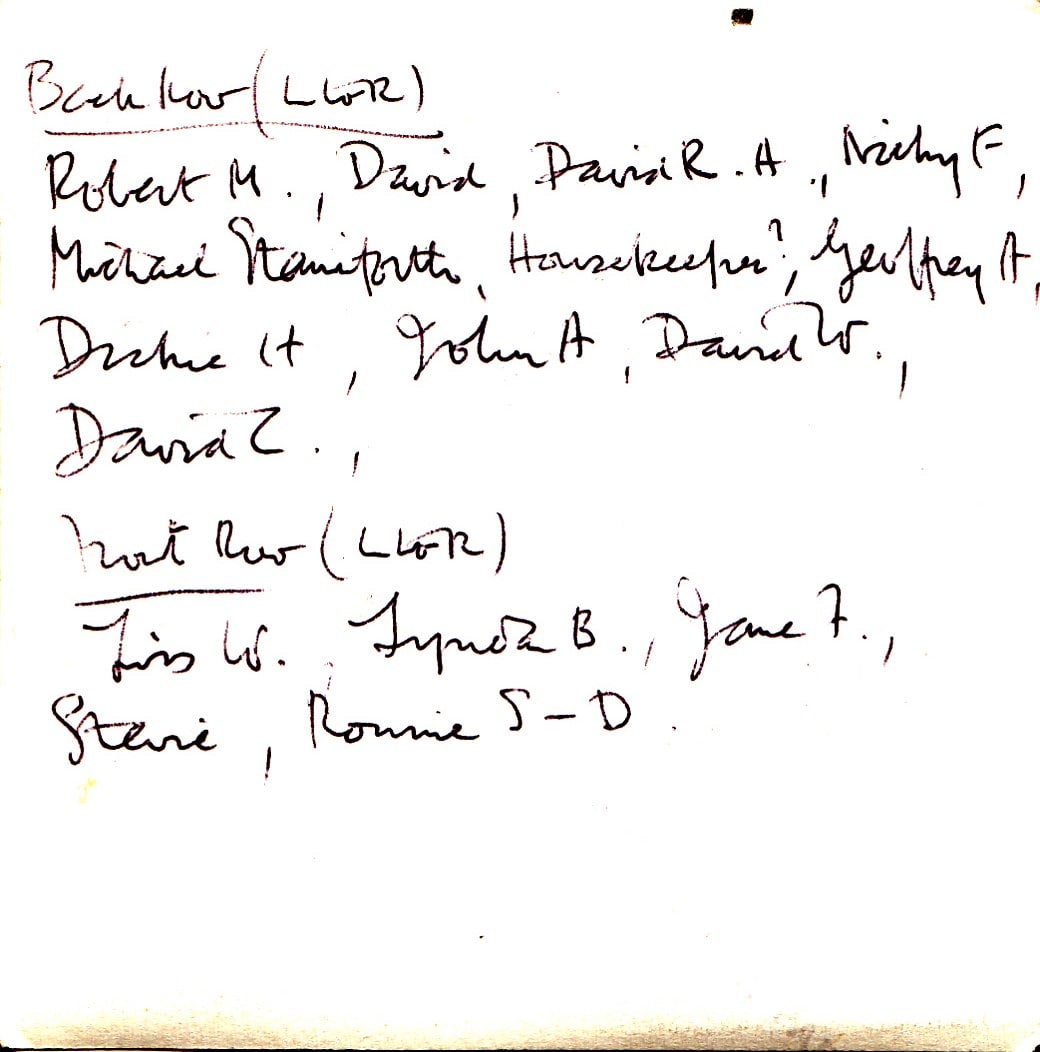 Back Row (L to R)
Robert M., David, David R.A., Nicky F,
Michael Staniforth, Housekeeper?, Geoffrey A,
Dickie H, John A, David W.,
David Z.,
Front Row (L to R)
Lynda B., Jane F.,
Stevie, Ronnie S-D.